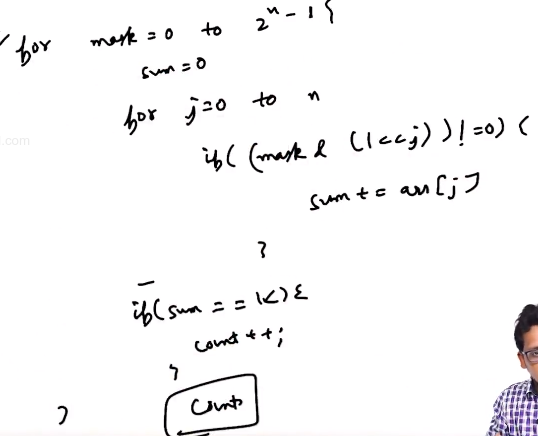 for mask = 0 to 2^n - 1 {
sum = 0
for j = 0 to n
if( (mask & (1<<j) ) != 0) {
.com
sum += arr[j]
}
if(sum == K) {
count++;
}
}
Count